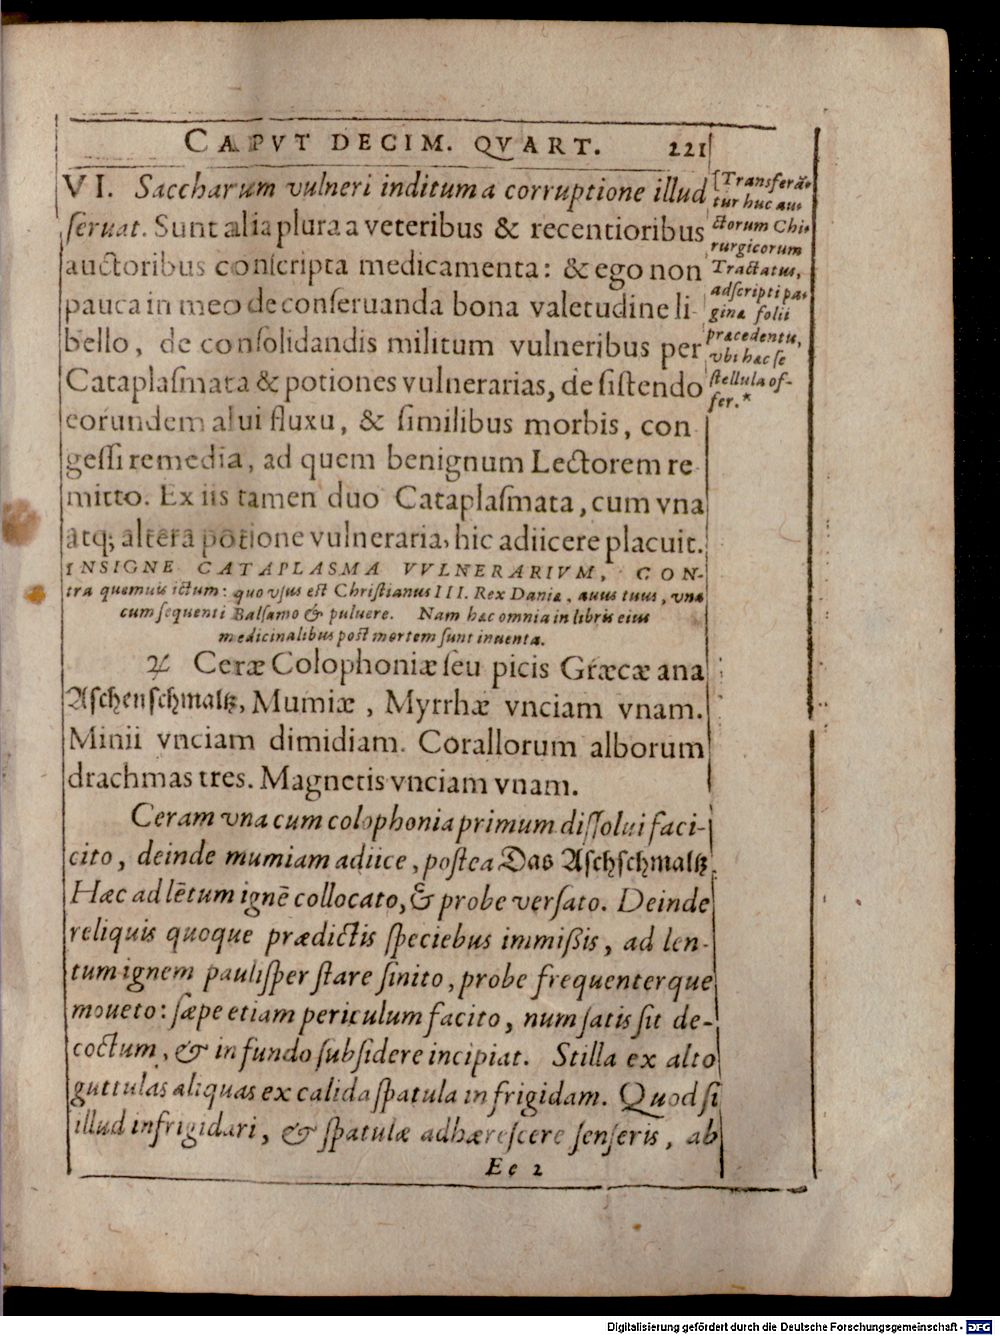 CAPVT DECIM. QVART. 221
VI. Saccharum vulneri inditum a corruptione illud
ſeruat. Sunt alia plura a veteribus & recentioribus
auctoribus conſcripta medicamenta: & ego non
pauca in meo de conſeruanda bona valetudine li-
bello, de conſolidandis militum vulneribus per
Cataplaſmata & potiones vulnerarias, de ſiſtendo
eorundem alui fluxu, & ſimilibus morbis, con
geſſi remedia, ad quem benignum Lectorem re-
mitto. Ex iis tamen duo Cataplaſmata, cum vna
atq; altera potione vulneraria, hic adiicere placuit.
[Transferā-
tur huc au-
ctorum Chi-
rurgicorum
Tractatus,
adſcripti pa-
gina folii
præcedentis,
vbi hac ſe
ſtellula of-
fer.*
INSIGNE CATAPLASMA VVLNERARIVM, CON-
tra quemuis ictum: quo vſus est Chriſtianus III. Rex Dania, auus tuus, vna
cum ſequenti Balſamo & puluere. Nam hac omnia in libris eius
medicinalibus post mortem ſunt inuenta.
♃ Ceræ Colophoniæ ſeu picis Græcæ ana
Aſchenſchmaltz, Mumiæ, Myrrhæ vnciam vnam.
Minii vnciam dimidiam. Corallorum alborum
drachmas tres. Magnetis vnciam vnam.
Ceram vna cum colophonia primum diſſolui faci-
cito, deinde mumiam adiice, poſtea Das Aſchſchmaltz.
Hæc ad lētum ignē collocato, & probe verſato. Deinde
reliquis quoque prædictis ſpeciebus immiſsis, ad len-
tum ignem pauliſper ſtare ſinito, probe frequenterque
moueto: ſæpe etiam periculum facito, num ſatis ſit de-
coctum, & in fundo ſubſidere incipiat. Stilla ex alto
guttulas aliquas ex calida ſpatula in frigidam. Quod ſi
illud infrigidari, & ſpatulæ adhæreſcere ſenſeris, ab
Ee 2
Digitalisierung gefördert durch die Deutsche Forschungsgemeinschaft - DFG